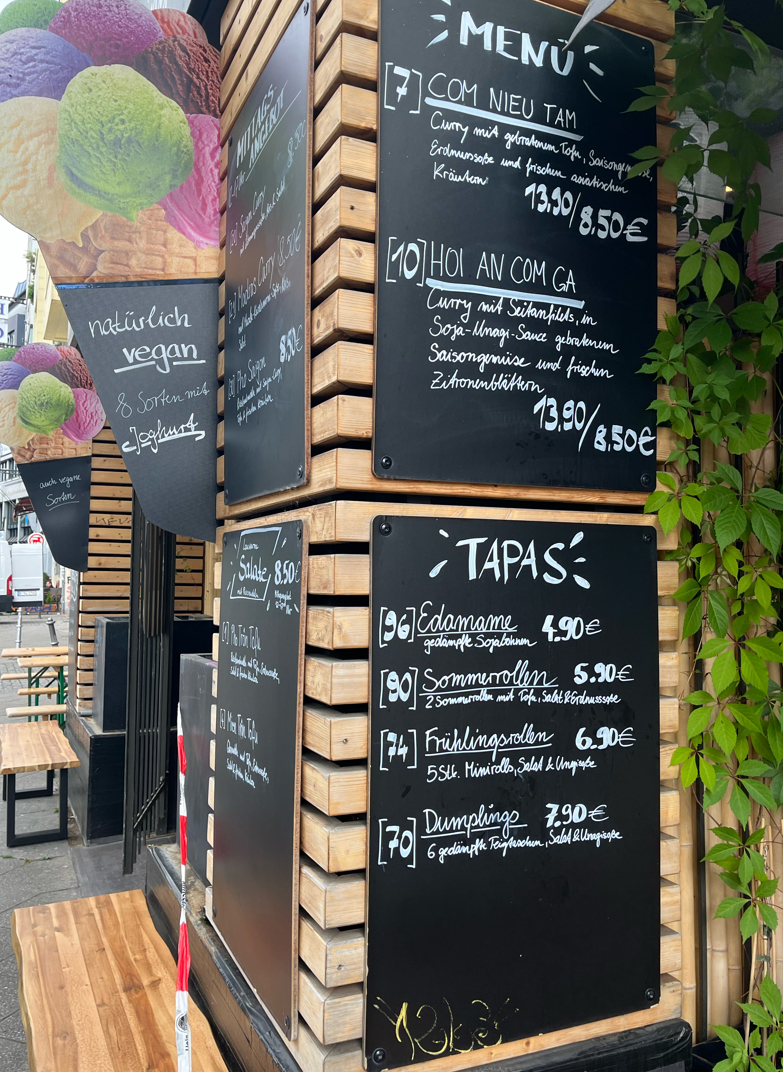 MENÜ
[7] COM NIEU TAM
Curry mit gebratenem Tofu, Saisongemüse,
Erdnusssoße und frischen asiatischen
Kräutern
13.90/8.50€
[10] HOI AN COM GA
Curry mit Seitanfilets, in
Soja-Unagi-Sauce gebratenem
Saisongemüse und frischen
Zitronenblättern
13.90/8.50€
TAPAS
[96] Edamame 4.90€
gedämpfte Sojabohnen
[90] Sommerrollen 5.90€
2 Sommerrollen mit Tofu, Salat & Erdnusssoße
[74] Frühlingsrollen 6.90€
5 Stk. Minirolls, Salat & Unagisoße
[70] Dumplings 7.90€
6 gedämpfte Teigtaschen, Salat & Unagisoße
MITTAGS
ANGEBOT
Saigon Curry 8.50€
Curry 8.50€
Pho Saigon 8.50€
Salate 8.50€
natürlich
vegan
8 Sorten mit
Joghurt
auch vegane
Sorten